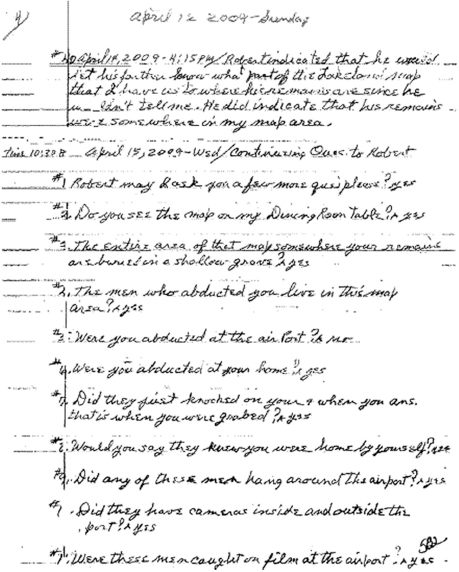 4)
April 12 2009-Sunday
#20 April 14, 2009-4:15PM/Robert indicated that he would
let his farther know what part of the map
that I have as to where his remains are since he
didn't tell me. He did indicate that his remains
were somewhere in my map area.
Time 10:30 P April 15, 2009-Wed/Continueing Ques. to Robert
#1 Robert may I ask you a few more ques please? A yes
#2. Do you see the map on my Dining Room Table? A yes
#3. The entire area of that map somewhere your remains
are buried in a shallow grave? A yes
The men who abducted you live in this map
area? A yes
Were you abducted at the air Port? A no
Were you abducted at your home? A yes
Did they first knocked on your & when you ans.
that is when you were grabed? A yes
Would you say they knew you were home by yourself? yes
Did any of these men hang around the airport? A yes
Did they have cameras inside and outside the
port? A yes
Were these men caught on film at the airport? A yes.